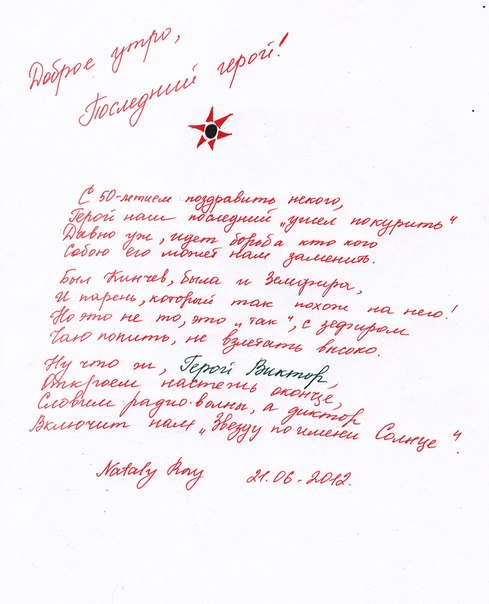 Доброе утро,
Последний герой!
С 50-летием поздравить некого,
Герой наш последний „ушел покурить“
Давно уж, идет борьба кто кого
Собою его может нам заменить.
Был Кинчев, была и Земфира,
И парень, который так похож на него!
Но это не то, это „так“, с зефиром
Чаю попить, не взлетать высоко.
Ну что ж, Герой Виктор,
Откроем настежь оконце,
Словим радио-волны, а диктор
Включит нам „Звезду по имени Солнце“.
Nataly Ray 21.06-2012.